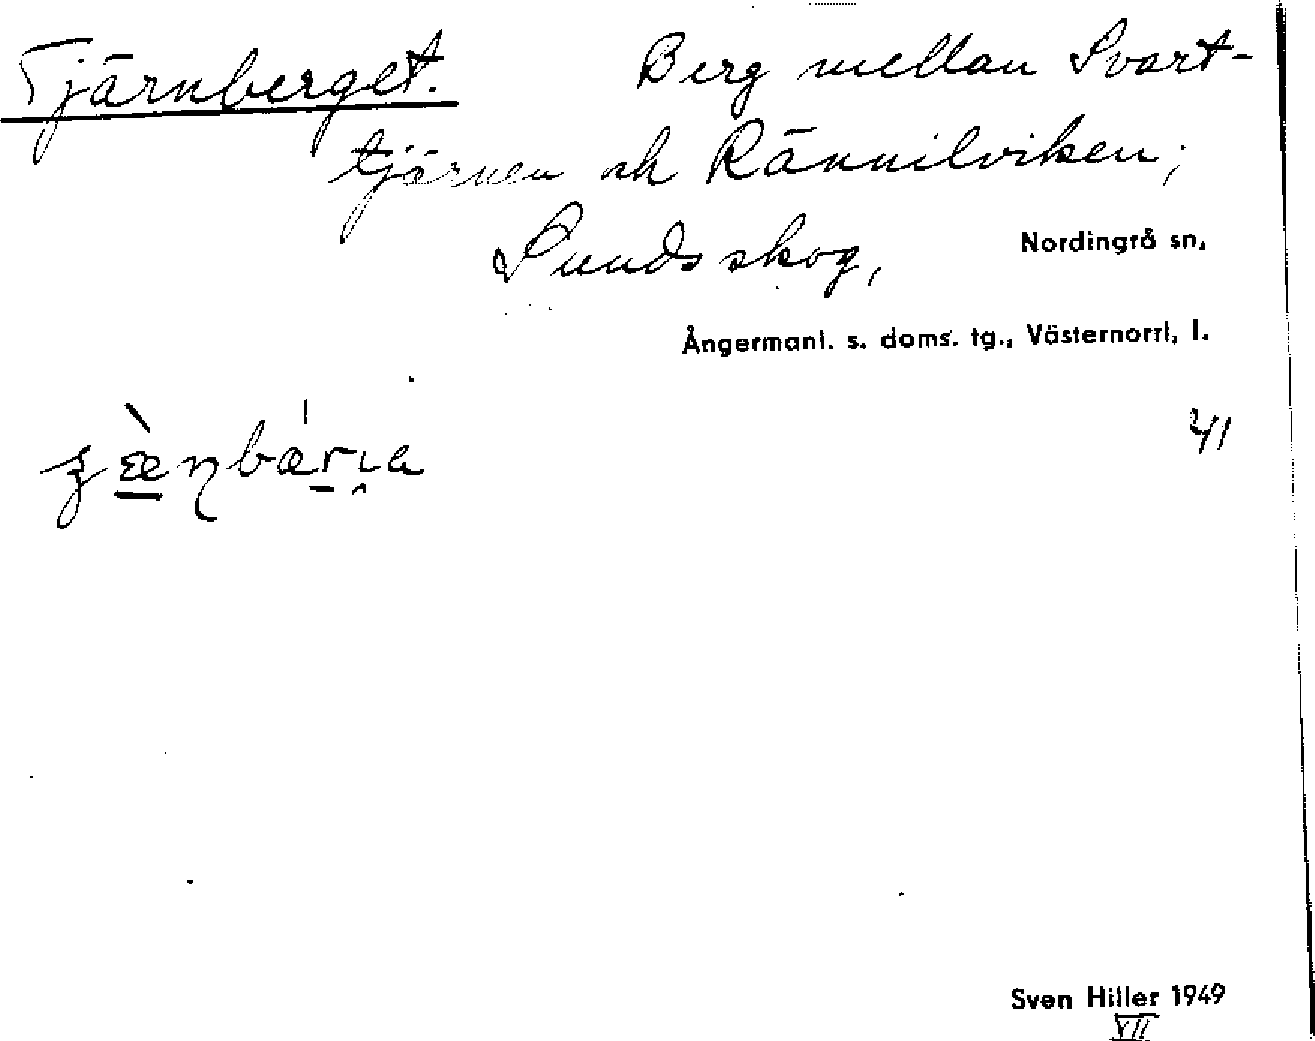 Tjärnberget. Berg mellan Svart-
tjärnen och Rännilviken;
Sunds skog, Nordingrå sn,
Ångermanl. s. doms. tg., Västernorrl. l.
41
Sven Hiller 1949
VII